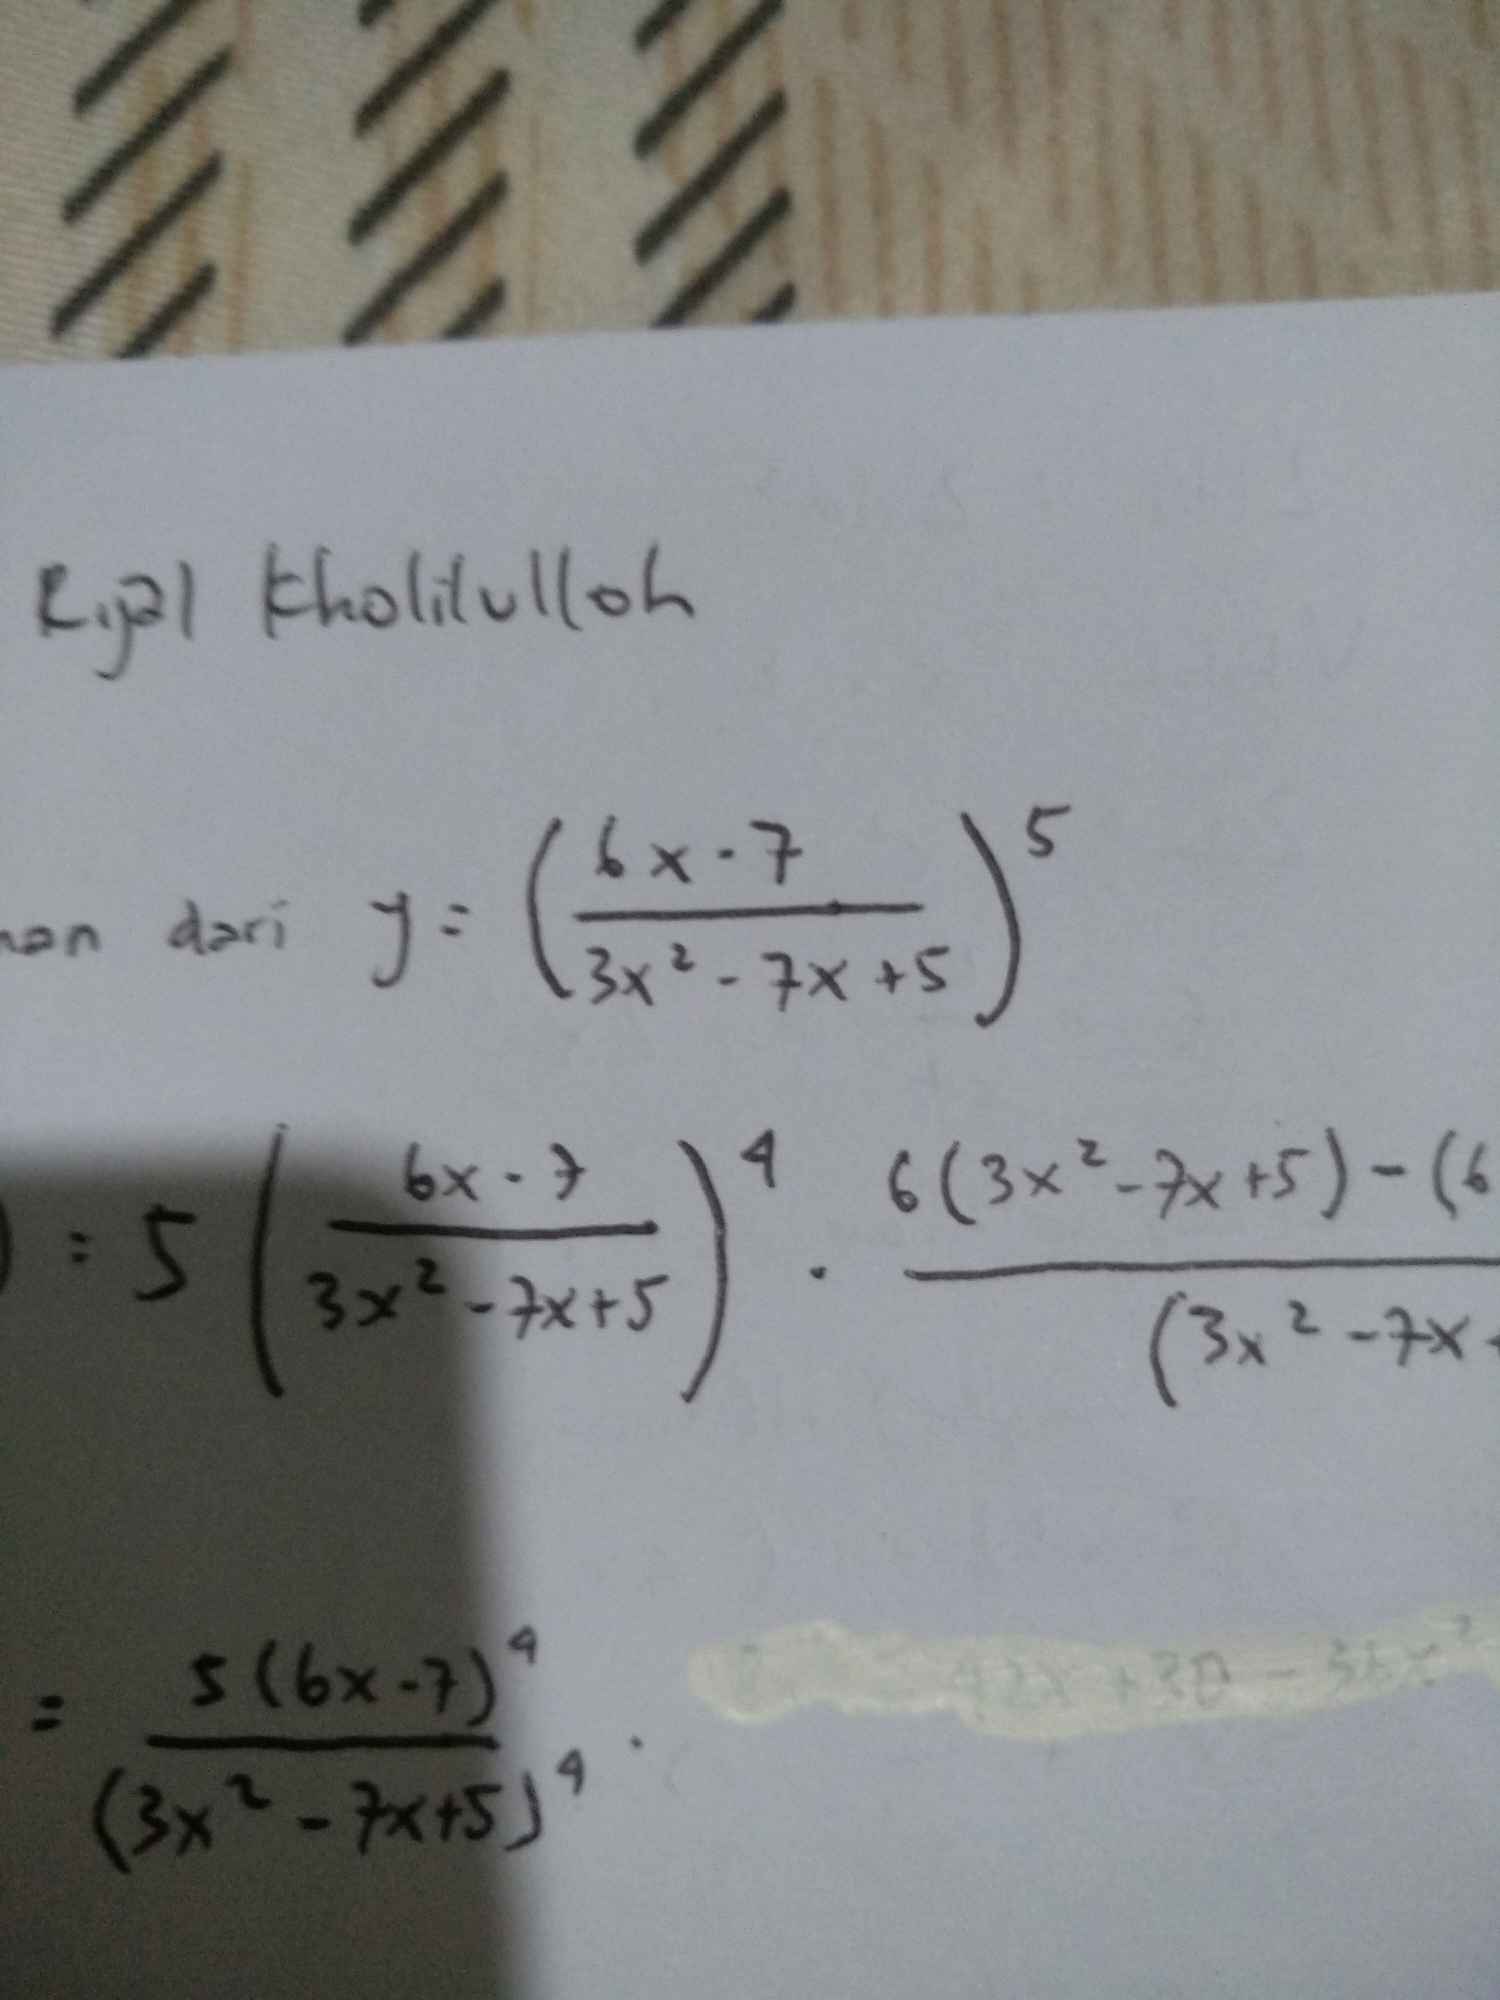 Rijal Kholilulloh
dari y = (6x - 7 / 3x² - 7x + 5)⁵
) = 5 (6x - 7 / 3x² - 7x + 5)⁴ . 6(3x² - 7x + 5) - (6 / (3x² - 7x +
= 5(6x - 7)⁴ / (3x² - 7x + 5)⁴ . 42x + 30 - 36x²